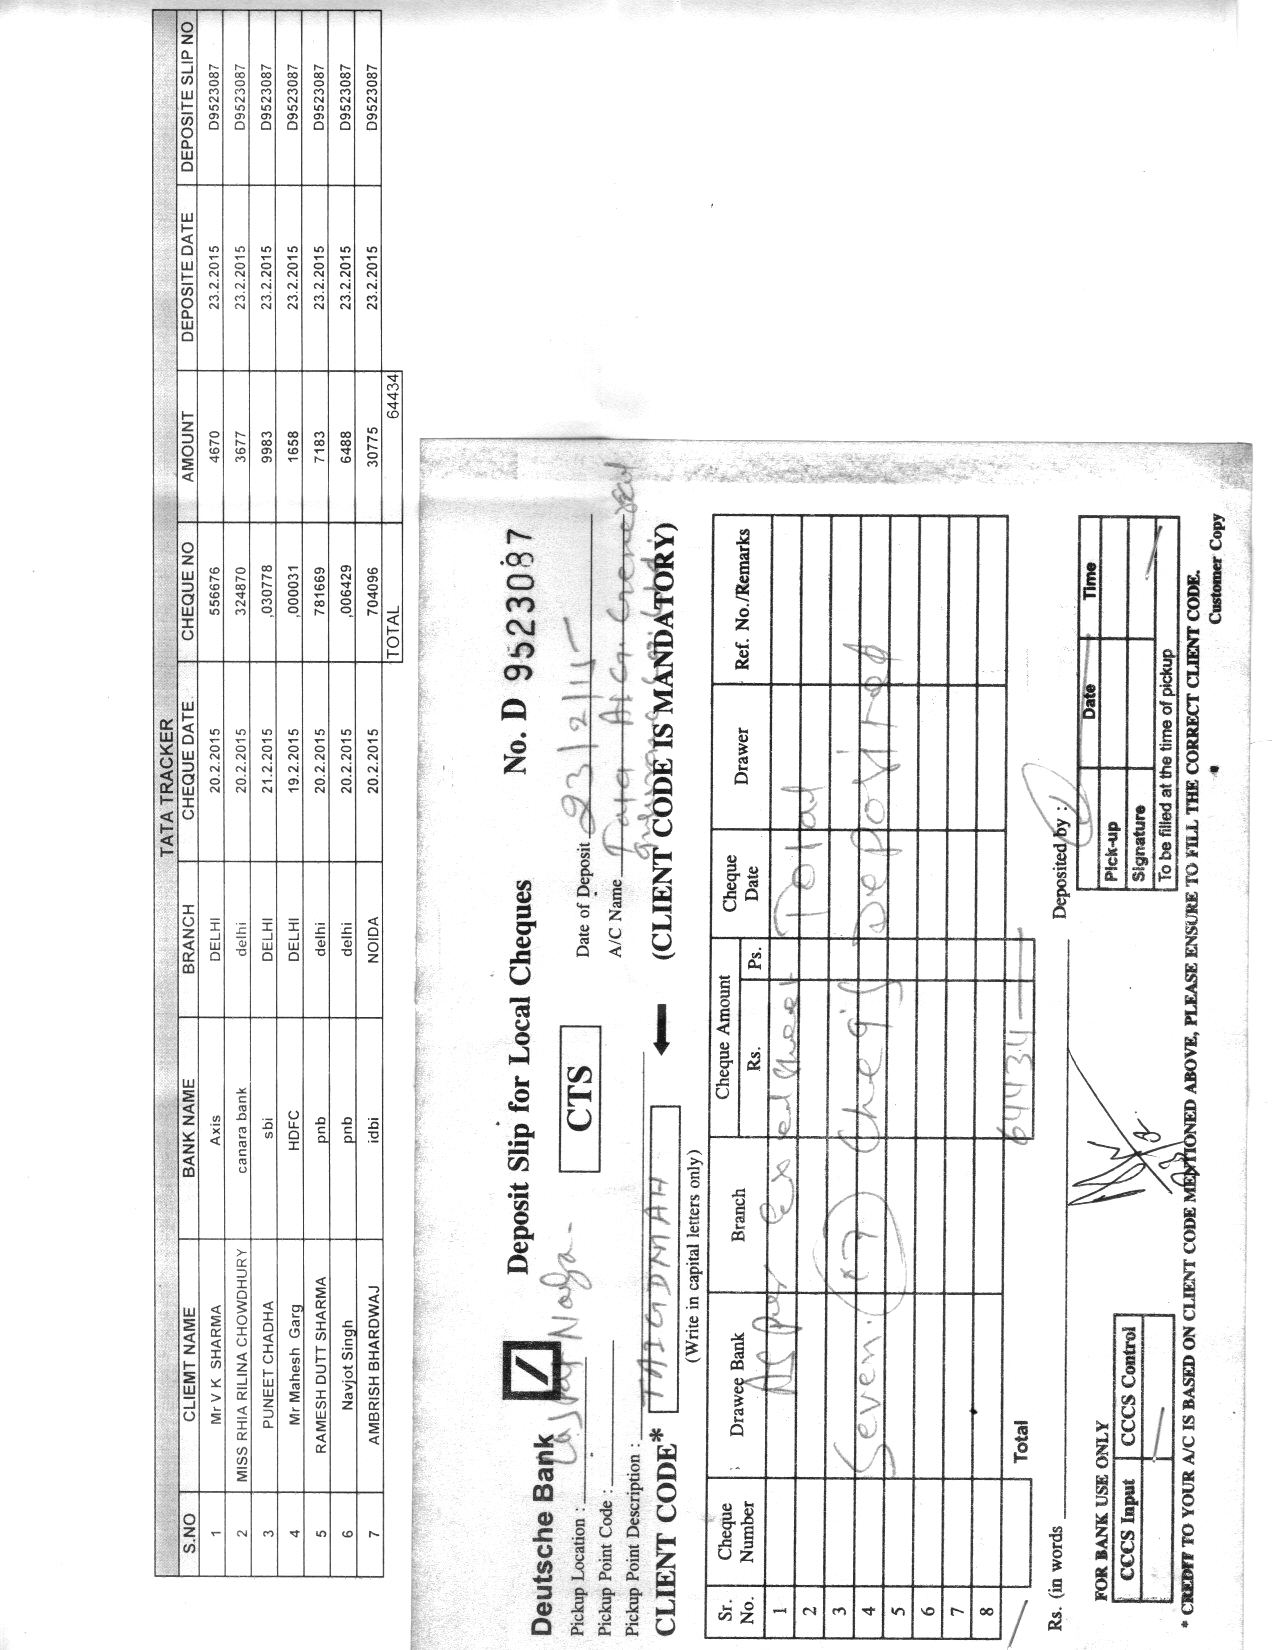 TATA TRACKER
S.NO CLIEMT NAME BANK NAME BRANCH CHEQUE DATE CHEQUE NO AMOUNT DEPOSITE DATE DEPOSITE SLIP NO
1 Mr V K SHARMA Axis DELHI 20.2.2015 556676 4670 23.2.2015 D9523087
2 MISS RHIA RILINA CHOWDHURY canara bank delhi 20.2.2015 324870 3677 23.2.2015 D9523087
3 PUNEET CHADHA sbi DELHI 21.2.2015 ,030778 9983 23.2.2015 D9523087
4 Mr Mahesh Garg HDFC DELHI 19.2.2015 ,000031 1658 23.2.2015 D9523087
5 RAMESH DUTT SHARMA pnb delhi 20.2.2015 781669 7183 23.2.2015 D9523087
6 Navjot Singh pnb delhi 20.2.2015 ,006429 6488 23.2.2015 D9523087
7 AMBRISH BHARDWAJ idbi NOIDA 20.2.2015 704096 30775 23.2.2015 D9523087
TOTAL 64434
Deutsche Bank Deposit Slip for Local Cheques No. D 9523087
Pickup Location : CTS Date of Deposit 23/2/15
Pickup Point Code : A/C Name Tata AIG General
Pickup Point Description :
CLIENT CODE* TAIGDMAH (CLIENT CODE IS MANDATORY)
(Write in capital letters only)
Sr. No. Cheque Number Drawee Bank Branch Cheque Amount Rs. Ps. Cheque Date Drawer Ref. No./Remarks
1 As per Total
2
3
4 Seven. 07 Deposited
5
6
7
8
Total 64434
Rs. (in words Deposited by :
Date Time
Pick-up
Signature
To be filled at the time of pickup
FOR BANK USE ONLY
CCCS Input CCCS Control
* CREDIT TO YOUR A/C IS BASED ON CLIENT CODE MENTIONED ABOVE, PLEASE ENSURE TO FILL THE CORRECT CLIENT CODE.
Customer Copy